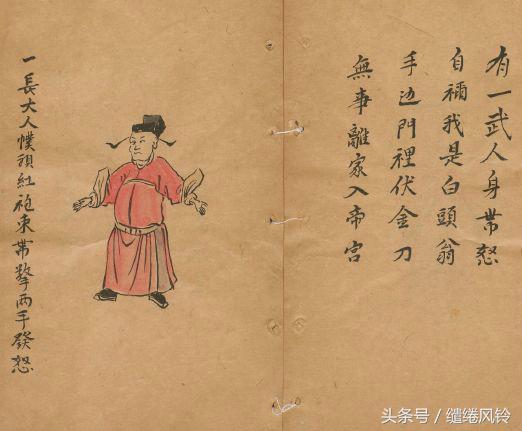 有一武人身帶怒
自稱我是白頭翁
手边門裡伏金刀
無事離家入帝宮
一長大人幞頭紅袍束帶擎两手發怒
头条号 / 缱绻风铃